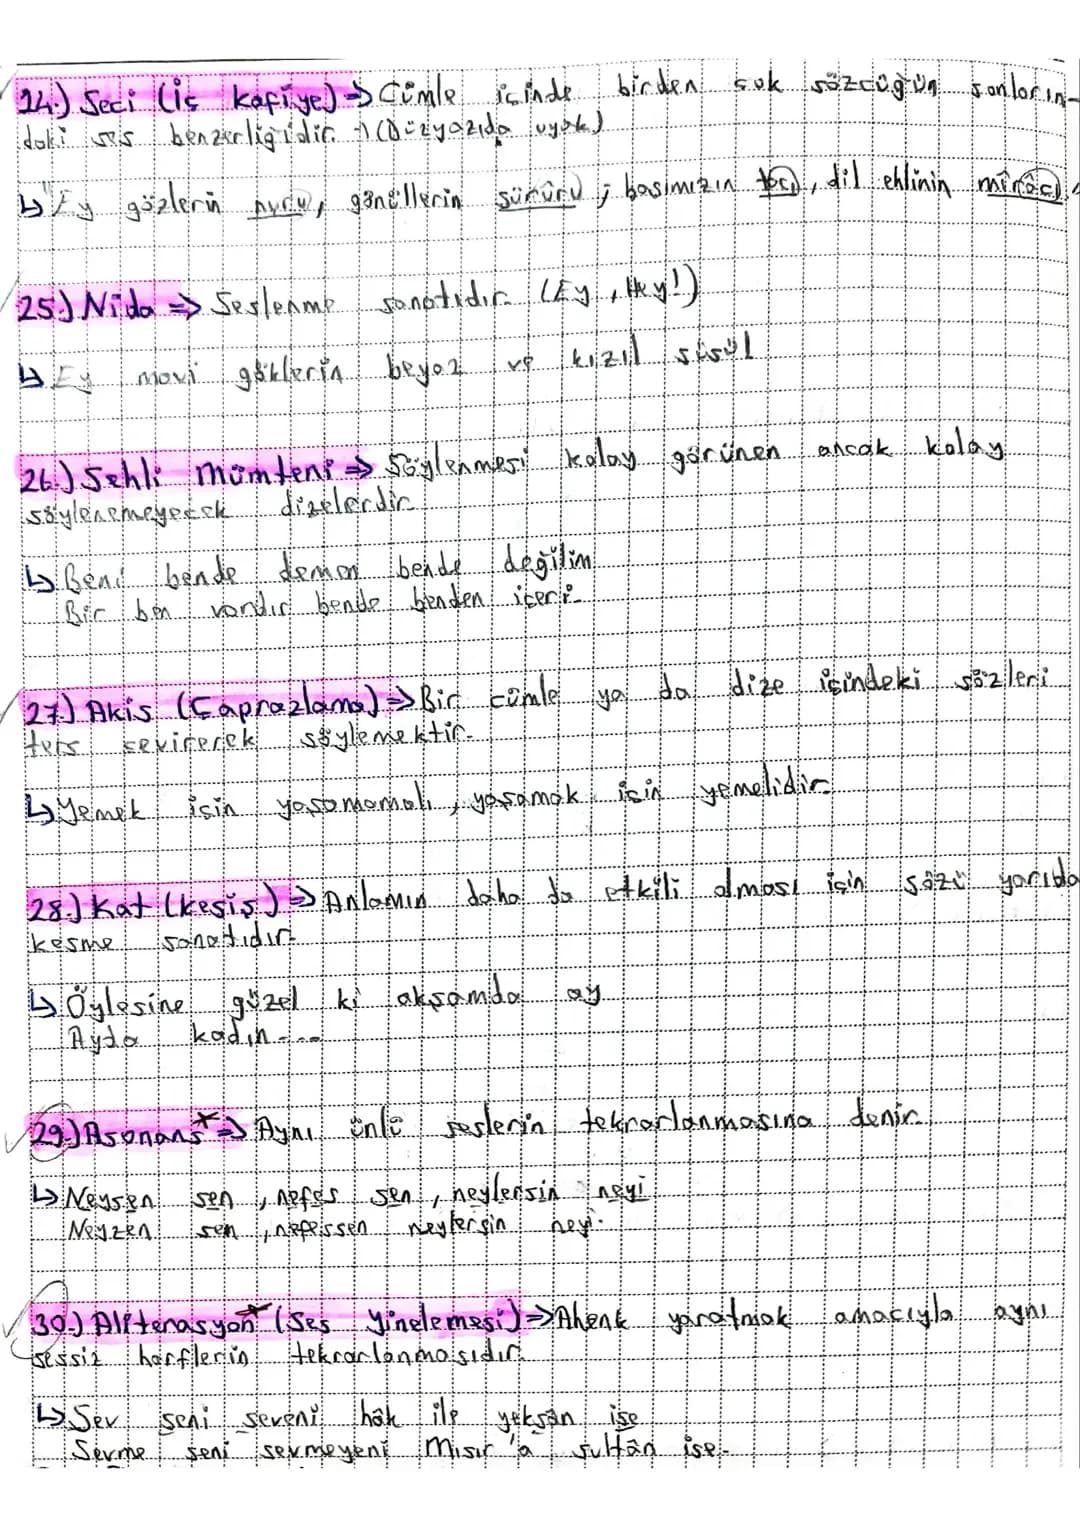 24.) Seci (İç kafiye) => Cümle içinde birden çok sözcüğün sonların-
daki ses benzerliğidir. -> (Düzyazıda uyak)
↳ "Ey gözlerin nuru, gönüllerin sürûru ; başımızın tacı, dil ehlinin mîrâcı,
25.) Nida => Seslenme sanatıdır. (Ey, Hey!)
↳ Ey mavi göklerin beyaz ve kızıl süsü!
26.) Sehli Mümteni => Söylenmesi kolay görünen ancak kolay
söylenemeyecek dizelerdir.
↳ Beni bende demen bende değilim
Bir ben vardır bende benden içeri.
27.) Akis (Çaprazlama) => Bir cümle ya da dize içindeki sözleri
ters çevirerek söylemektir.
↳ Yemek için yaşamamalı, yaşamak için yemelidir.
28.) Kat (kesiş) => Anlamın daha da etkili olması için sözü yarıda
kesme sanatıdır.
↳ Öylesine güzel ki akşamda ay
Ayda kadın....
29.) Asonans* => Aynı ünlü seslerin tekrarlanmasına denir.
↳ Neysen sen, nefes sen, neylersin neyi
Neyzen sen, nefeissen neylersin neyi.
30.) Aliterasyon* (Ses Yinelemesi) => Ahenk yaratmak amacıyla aynı
sessiz harflerin tekrarlanmasıdır.
↳ Sev seni seveni hâk ile yeksân ise
Sevme seni sevmeyeni Mısır'a sultân ise.